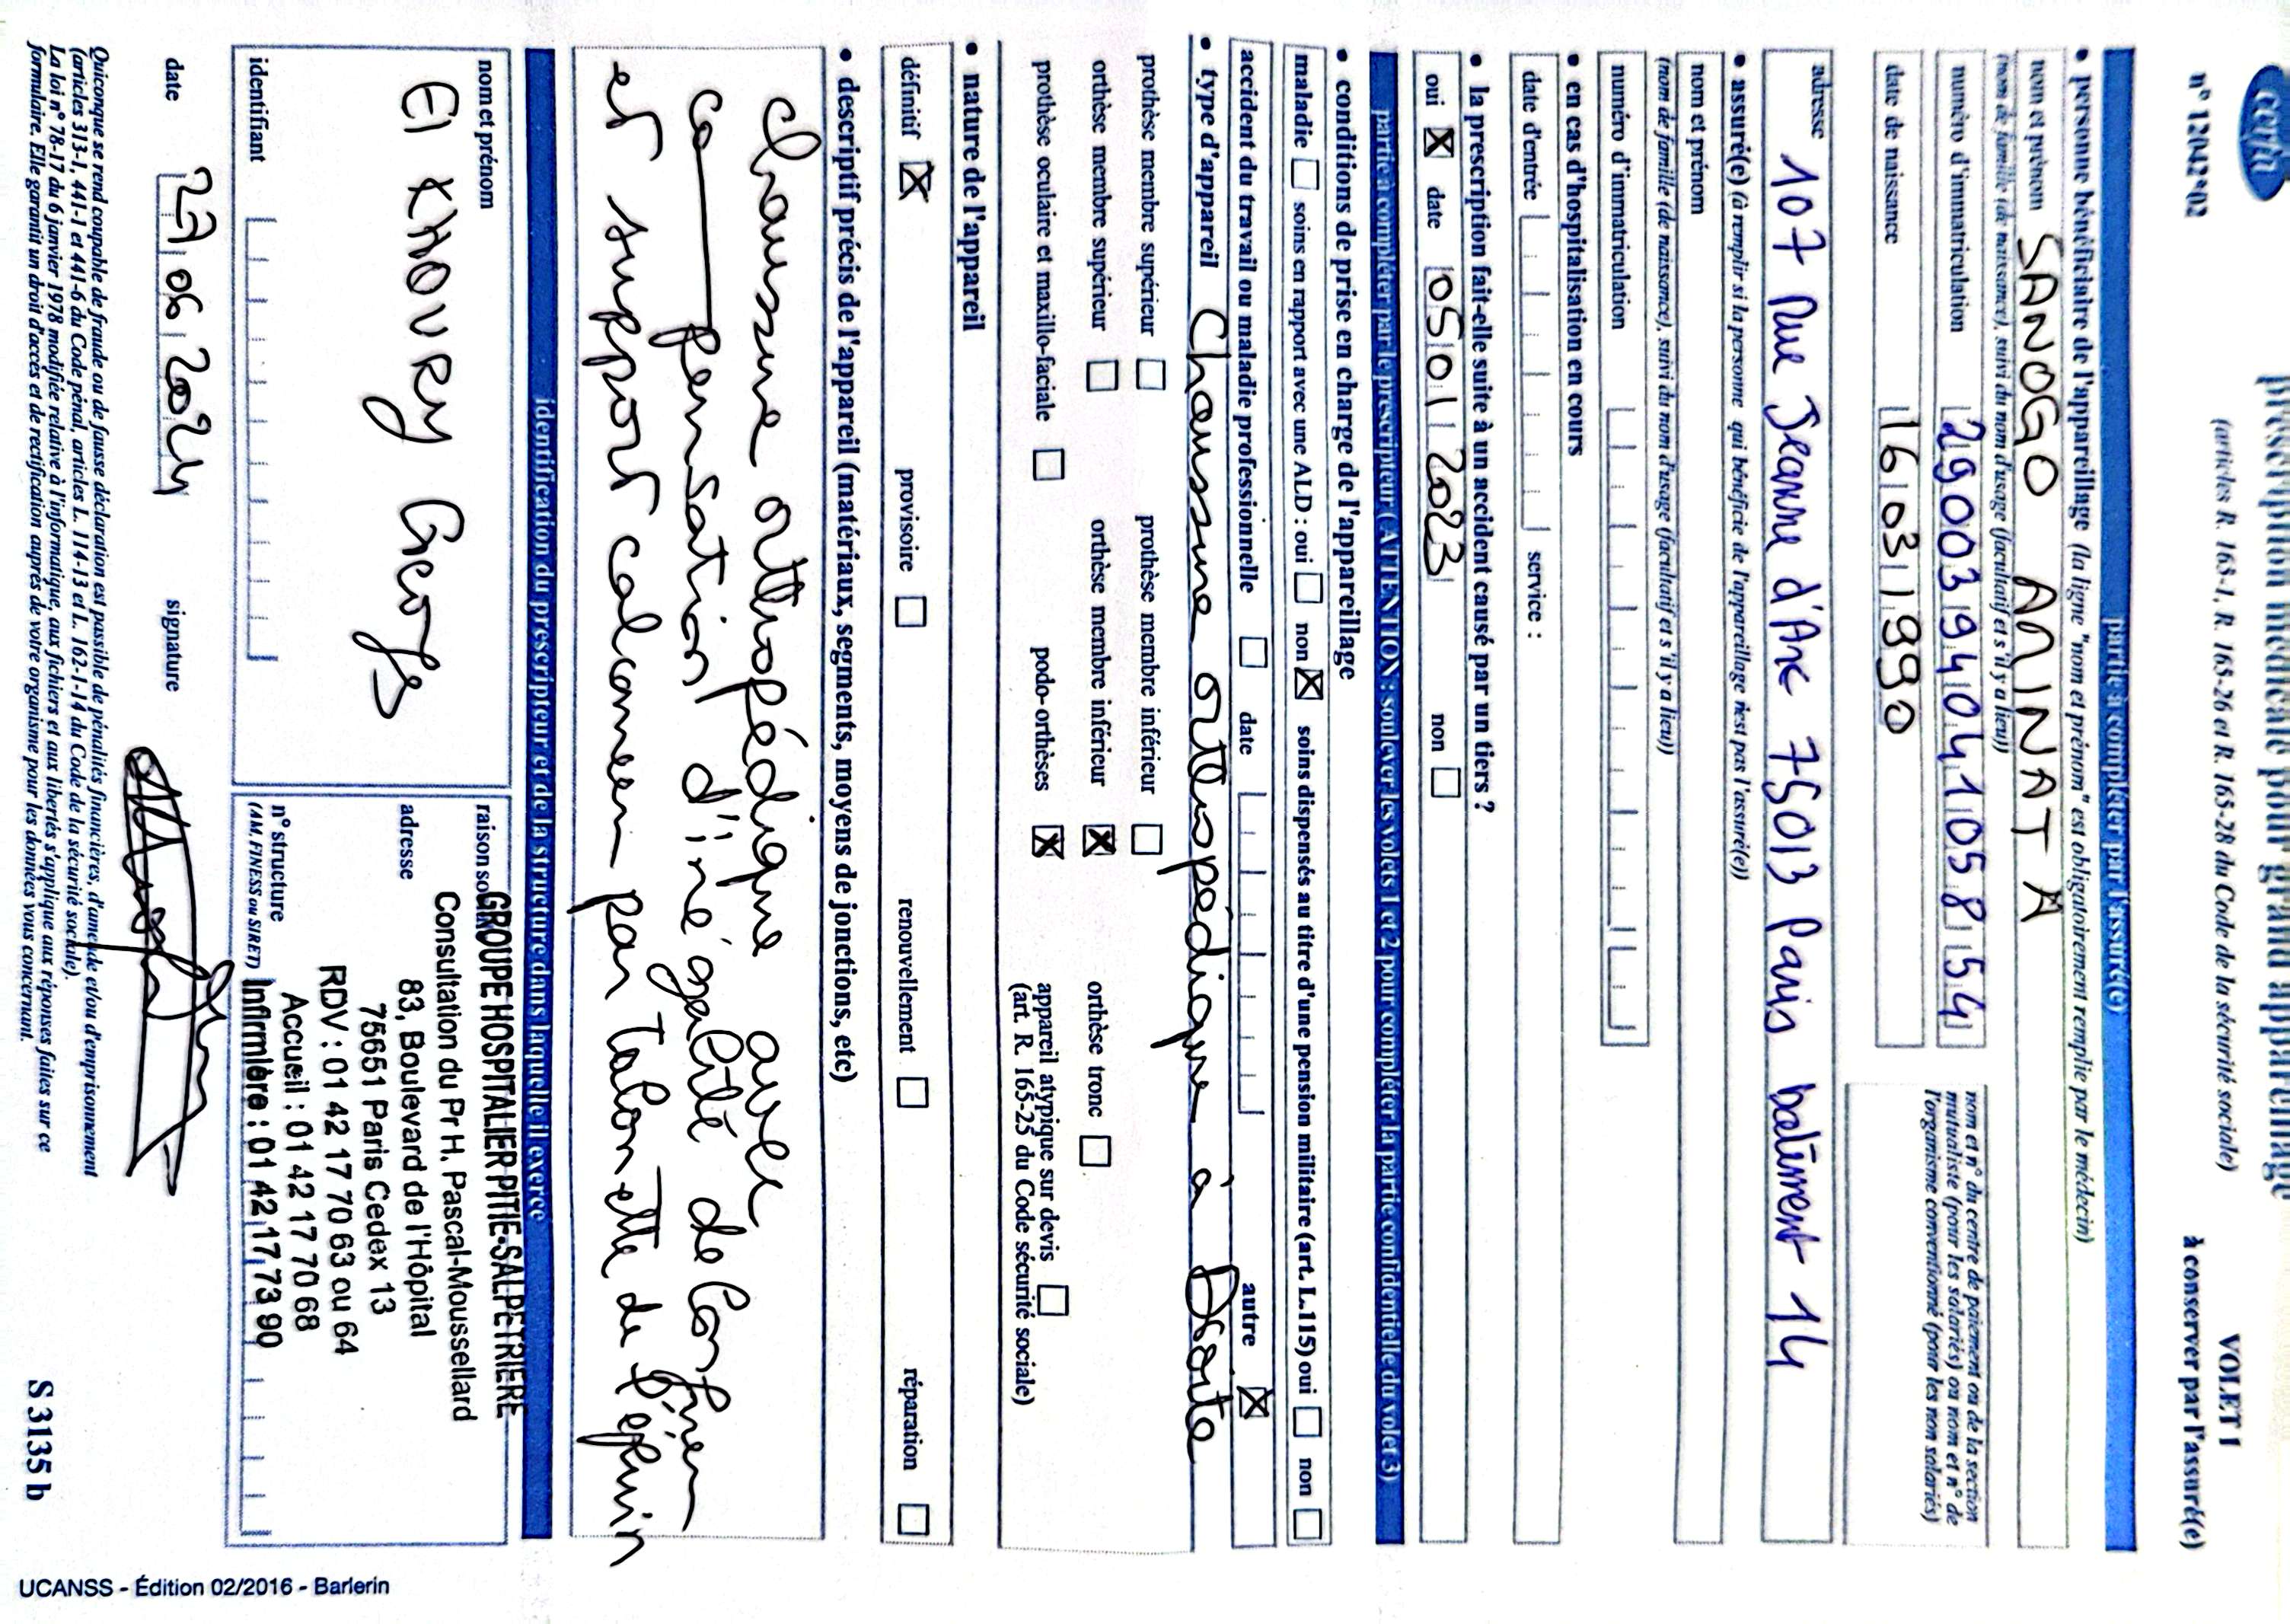 cerfa
n° 12042*02
prescription médicale pour grand appareillage
(articles R. 165-1, R. 165-26 et R. 165-28 du Code de la sécurité sociale)
VOLET 1
à conserver par l'assuré(e)
partie à compléter par l'assuré(e)
• personne bénéficiaire de l'appareillage (la ligne "nom et prénom" est obligatoirement remplie par le médecin)
nom et prénom SANOGO AMINATA
(nom de famille (de naissance), suivi du nom d'usage (facultatif et s'il y a lieu))
numéro d'immatriculation 2 90 03 94 041 058 54
date de naissance 16 03 1990
nom et n° du centre de paiement ou de la section
mutualiste (pour les salariés) ou nom et n° de
l'organisme conventionné (pour les non salariés)
adresse 107 Rue Jeanne d'Arc 75013 Paris batiment 14
• assuré(e) (à remplir si la personne qui bénéficie de l'appareillage n'est pas l'assuré(e))
nom et prénom
(nom de famille (de naissance), suivi du nom d'usage (facultatif et s'il y a lieu))
numéro d'immatriculation
• en cas d'hospitalisation en cours
date d'entrée service :
• la prescription fait-elle suite à un accident causé par un tiers ?
oui X date 05 01 2023 non
partie à compléter par le prescripteur (ATTENTION : soulever les volets 1 et 2 pour compléter la partie confidentielle du volet 3)
• conditions de prise en charge de l'appareillage
maladie soins en rapport avec une ALD : oui non X soins dispensés au titre d'une pension militaire (art. L.115) oui non
accident du travail ou maladie professionnelle date autre X
• type d'appareil Chaussure orthopédique à Droite
prothèse membre supérieur prothèse membre inférieur
orthèse membre supérieur orthèse membre inférieur X orthèse tronc
prothèse oculaire et maxillo-faciale podo-orthèses X appareil atypique sur devis
(art. R. 165-25 du Code sécurité sociale)
• nature de l'appareil
définitif X provisoire renouvellement réparation
• descriptif précis de l'appareil (matériaux, segments, moyens de jonctions, etc)
chaussure orthopédique avec
compensation d'inégalité de
et support calcaneen par talonnette de
identification du prescripteur et de la structure dans laquelle il exerce
nom et prénom
El KHOURY Georges
identifiant
raison so
GROUPE HOSPITALIER PITIE-SALPETRIERE
Consultation du Pr H. Pascal-Moussellard
adresse
83, Boulevard de l'Hôpital
75651 Paris Cedex 13
RDV : 01 42 17 70 63 ou 64
Accueil : 01 42 17 70 68
n° structure
(AM, FINESS ou SIRET) Infirmière : 01 42 17 73 90
date 27 06 2024 signature
Quiconque se rend coupable de fraude ou de fausse déclaration est passible de pénalités financières, d'amende et/ou d'emprisonnement
(articles 313-1, 441-1 et 441-6 du Code pénal, articles L. 114-13 et L. 162-1-14 du Code de la sécurité sociale).
La loi n° 78-17 du 6 janvier 1978 modifiée relative à l'informatique, aux fichiers et aux libertés s'applique aux réponses faites sur ce
formulaire. Elle garantit un droit d'accès et de rectification auprès de votre organisme pour les données vous concernant.
S 3135 b
UCANSS - Édition 02/2016 - Barlerin